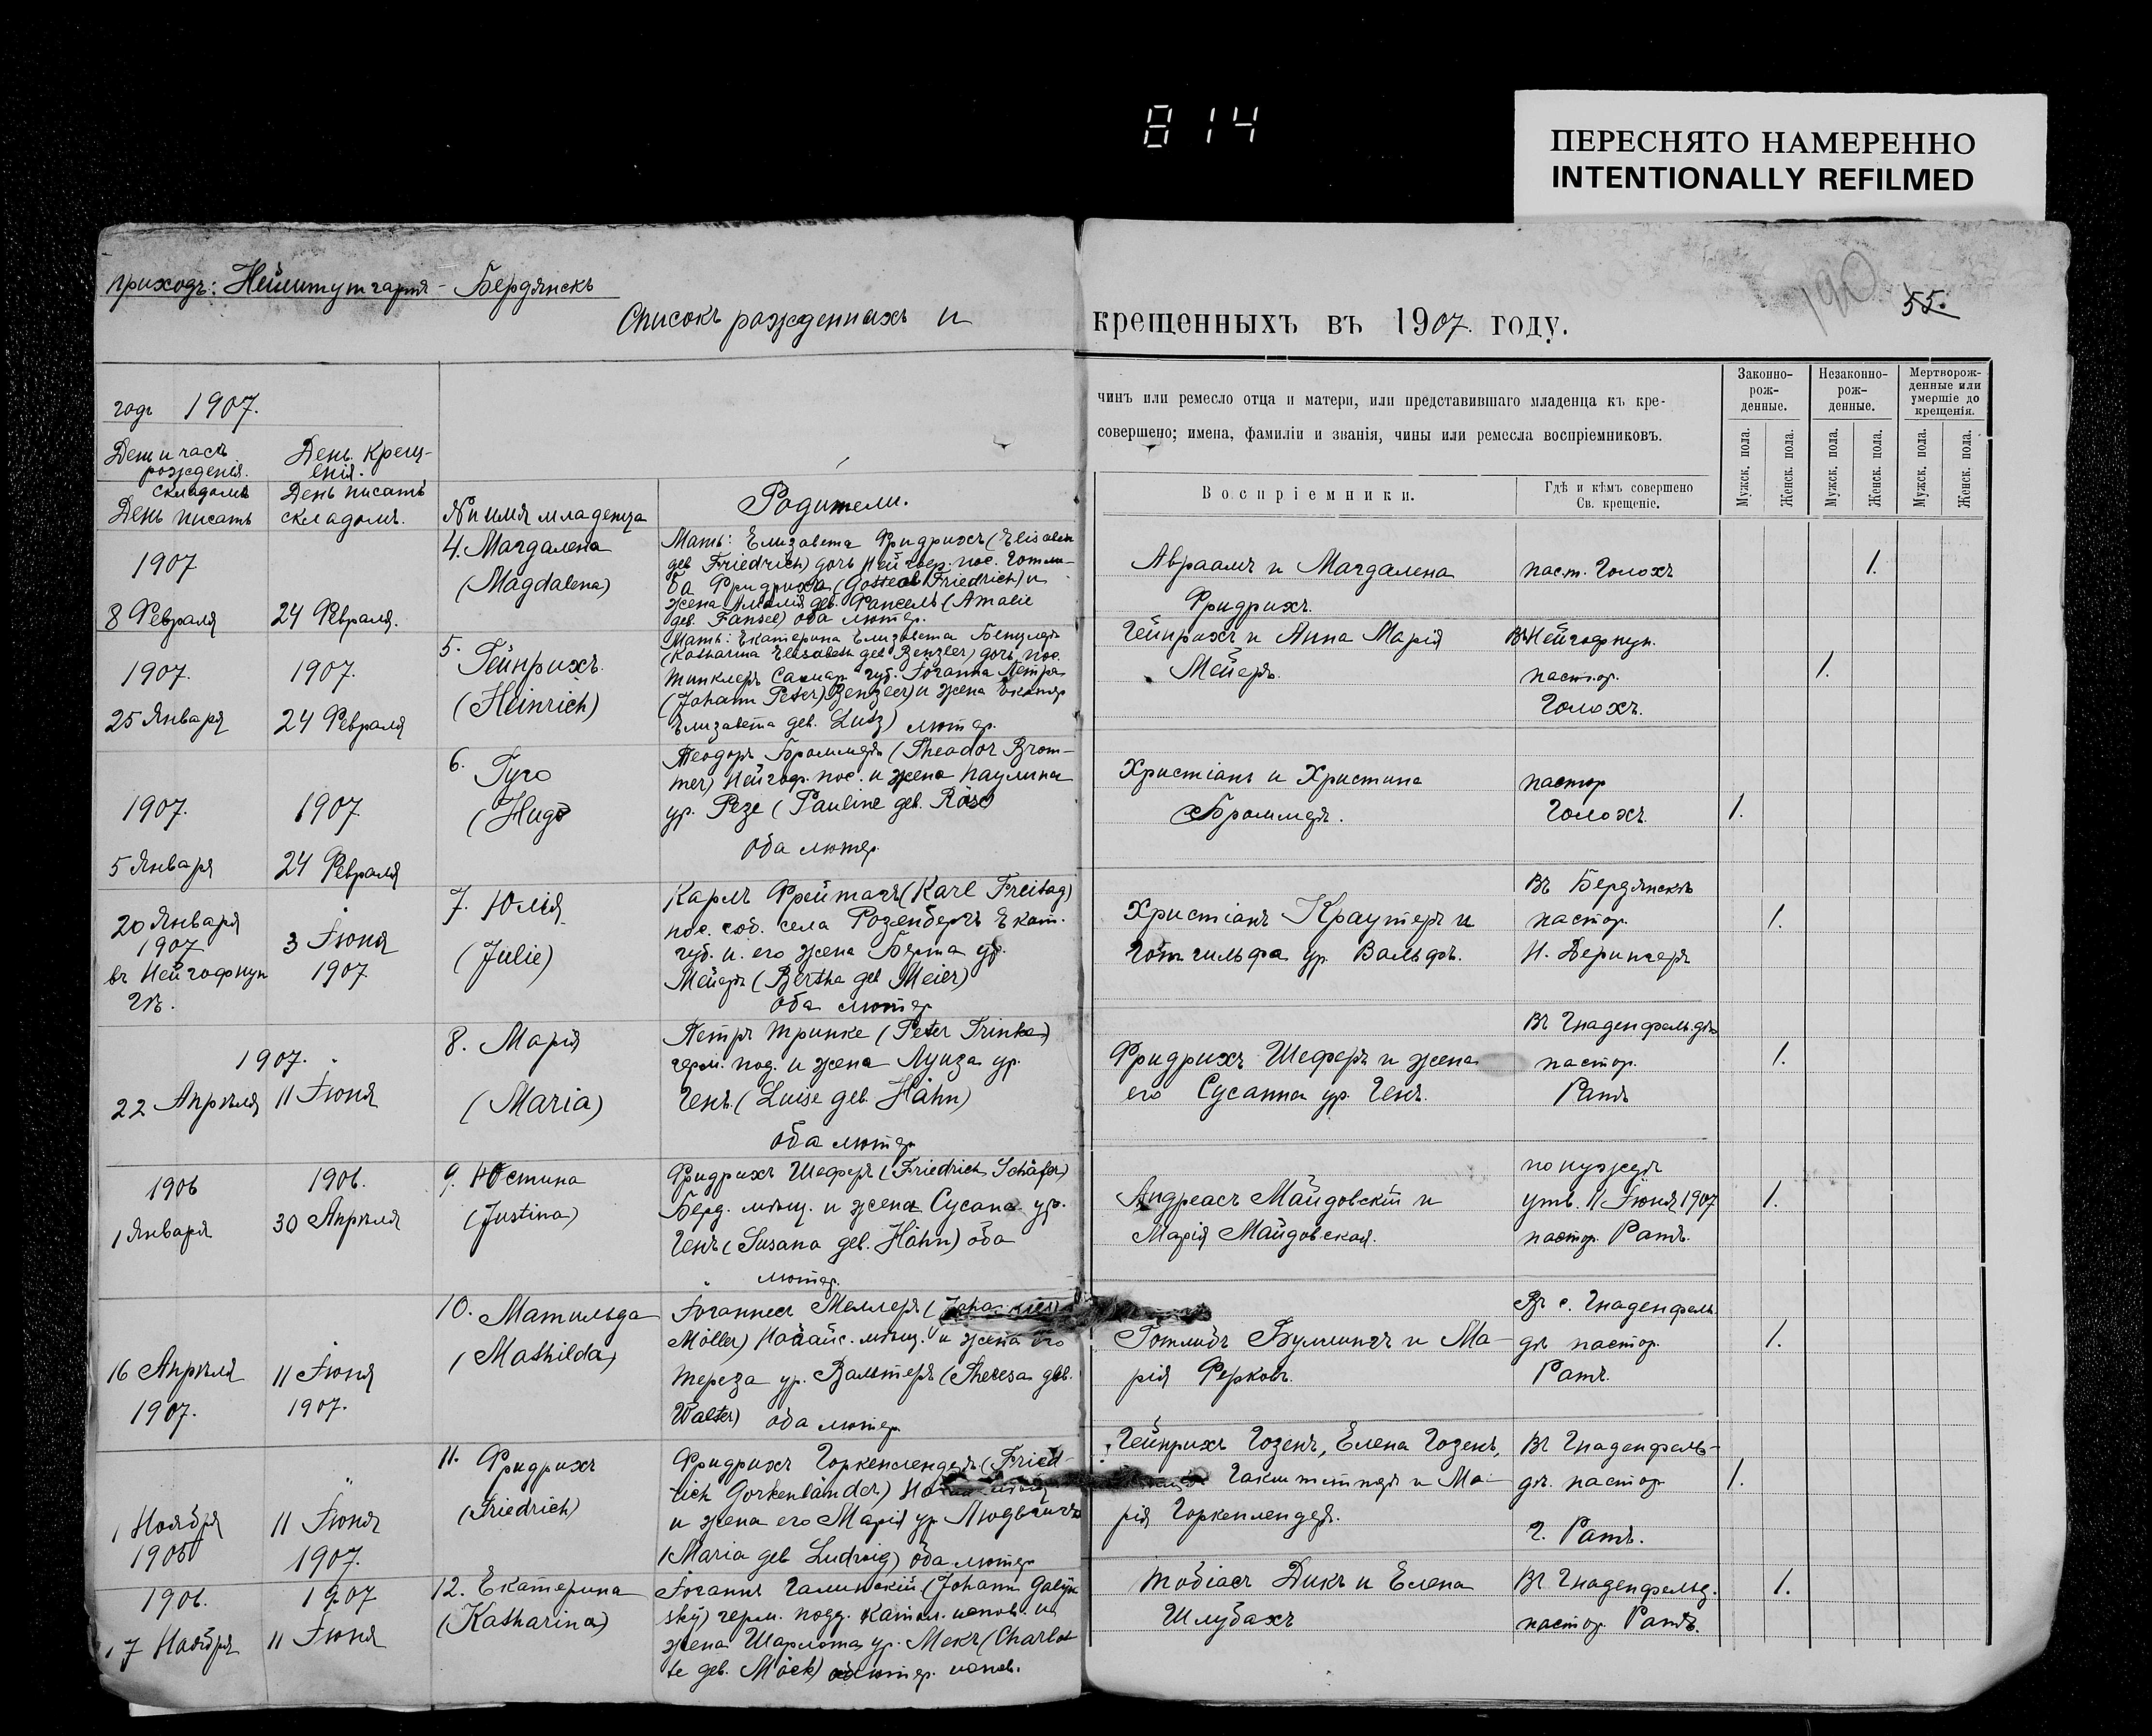 814
ПЕРЕСНЯТО НАМЕРЕННО
INTENTIONALLY REFILMED
приходъ: Нейштутгартъ - Бердянскъ
190
55.
Списокъ рожденныхъ и
крещенныхъ въ 1907. году.
годъ 1907.
День и часъ рожденія.
День крещ-
енія.
День писать складомъ
День писать складомъ.
№ и имя младенца
Родители.
чинъ или ремесло отца и матери, или представившаго младенца къ кре-
совершено; имена, фамиліи и званія, чины или ремесла воспріемниковъ.
Воспріемники.
Гдѣ и кѣмъ совершено
Св. крещеніе.
Законно-
рож-
денные.
Незаконно-
рож-
денные.
Мертворож-
денные или
умершіе до
крещенія.
Мужск. пола.
Женск. пола.
Мужск. пола.
Женск. пола.
Мужск. пола.
Женск. пола.
1907
8 Февраля
24 Февраля.
4. Магдалена
(Magdalena)
Мать: Елизавета Фридрихъ (Elisabeth
geb Friedrich) дочь Нейгоф. пос. Готли-
ба Фридриха (Gottlieb Friedrich) и
жена Амалія geb. Фансель (Amalie
geb. Fansel) оба лютер.
Авраамъ и Магдалена
Фридрихъ.
паст.Голохъ
1.
1907.
25 Января
1907.
24 Февраля
5. Гейнрихъ.
(Heinrich)
Мать: Екатерина Елизавета Бенцлеръ
(Katharina Elisabeth geb Benzler) дочь пос.
Самар. губ. Іоганна Петра
(Johann Peter) Benzler) и жена Екатер
Елизавета geb. Lutz) лютер.
Гейнрихъ и Анна Марія
Мейеръ.
Въ Нейгофнун.
пастор.
Голохъ.
1.
1907.
5 Января
1907
24 Февраля
6. Гуго
(Hugo
Теодоръ Броммеръ (Theodor Brom-
mer) Нейгоф. пос. и жена Паулина
ур. Резе (Pauline geb. Röse)
оба лютер.
Христіанъ и Христина
Броммеръ.
пастор
Голохъ.
1.
20 Января
1907
въ Нейгофнун
гѣ.
3 Іюня
1907
7. Юлія
(Julie)
Карлъ Фрейтагъ (Karl Freitag)
пос. соб. села Розенбергъ Екат.
губ. и его жена Берта ур.
Мейеръ (Bertha geb Meier)
оба лютер
Христіанъ Краутеръ и
Готгильфа ур. Вальфъ.
Въ Бердянскѣ
пастор.
И. Дерингеръ
1.
1907.
22 Апрѣля
11 Іюня
8. Марія
(Maria)
Петръ Тринке (Peter Trinke)
герм. под. и жена Луиза ур.
Генъ (Luise geb. Hähn)
оба лютер
Фридрихъ Шеферъ и жена
его Сусанна ур. Генъ.
Въ Гнаденфельдѣ
пастор.
Ратъ
1.
1906
1 Января
1906.
30 Апрѣля
9. Юстина
(Justina)
Фридрихъ Шеферъ (Friedrich Schäfer)
Берд. мѣщ. и жена Сусана ур.
Генъ (Susana geb. Hähn) оба
лютер.
Андреасъ Майдовскій и
Марія Майдовская.
по нуждѣ
утв. 11 Іюня 1907
пастор. Ратъ.
1.
16 Апрѣля
1907.
11 Іюня
1907.
10. Матильда
(Mathilda)
Іоганнесъ Меллеръ (Johannes
Möller) Ногайс. мѣщ. и жена его
Тереза ур. Вальтеръ (Theresa geb.
Walter) оба лютер
Готлибъ Буллингъ и Ма-
рія Ферковъ.
Въ с. Гнаденфель-
дѣ пастор.
Ратъ.
1.
1 Ноября
1906
11 Іюня
1907.
11. Фридрихъ
(Friedrich)
Фридрихъ Горкенлендеръ (Fried-
rich Gorkenländer)
и жена его Марія ур. Людвигъ
(Maria geb Ludwig) оба лютер
Гейнрихъ Гозенъ, Елена Гозенъ,
и Ма-
рія Горкенлендеръ.
Въ Гнаденфель-
дѣ. пастор
Г. Ратъ.
1.
1906.
17 Ноября
1907
11 Іюня
12. Екатерина
(Katharina)
Іоганнъ Галинскій (Johann Galin
sky) герм. подд. катол. испов. и
жена Шарлота ур. Мекъ (Charlot
te geb. Möck) лютер. испов.
Тобіасъ Дикъ и Елена
Шлубахъ
Въ Гнаденфельд.
пастор. Ратъ.
1.